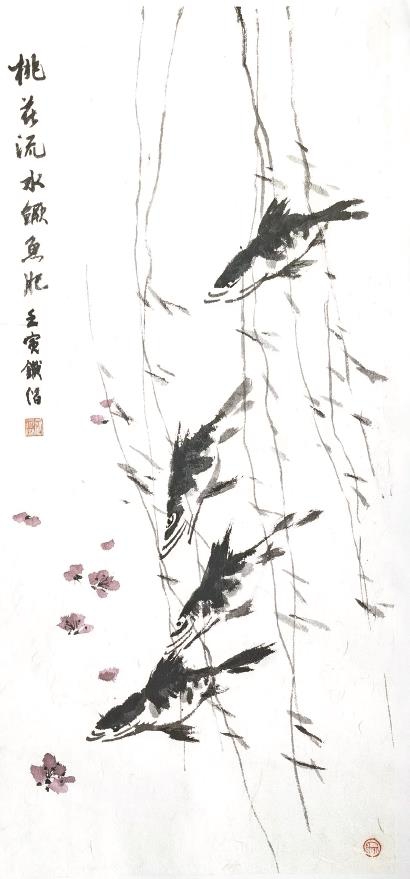 桃花流水鳜鱼肥
壬寅鐵侣